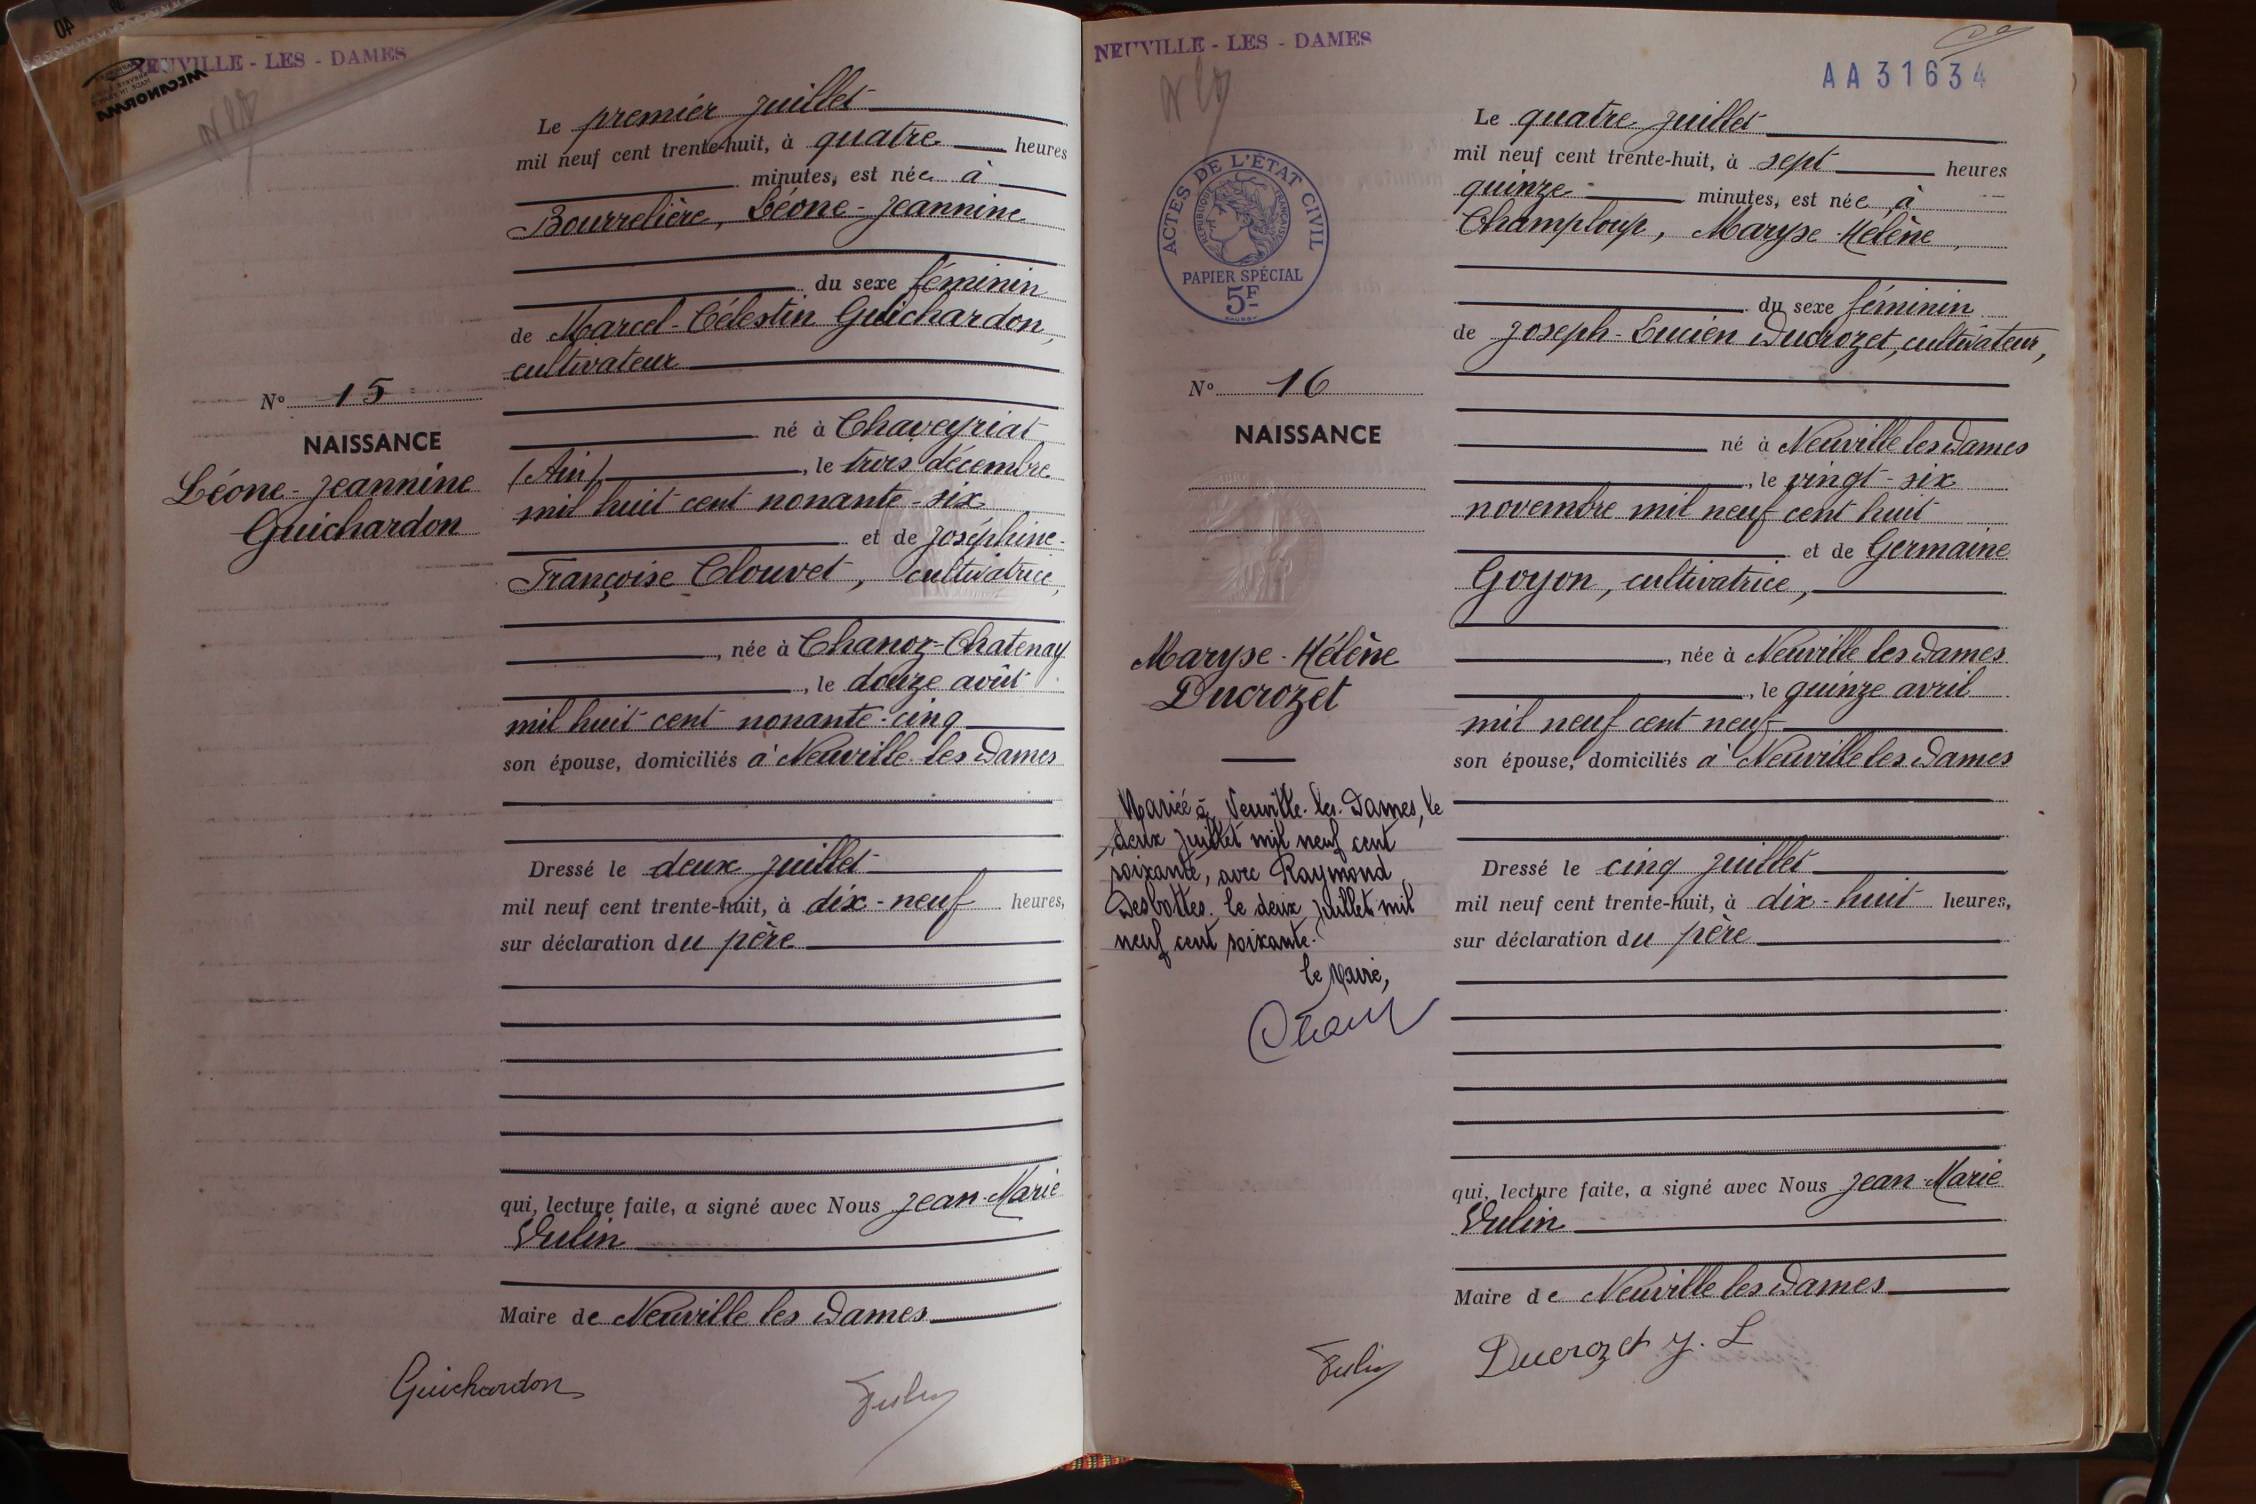 NEUVILLE - LES - DAMES
Le premier juillet
mil neuf cent trente-huit, à quatre heures
minutes, est née à
Bourrelière, Léone-Jeannine
du sexe féminin
de Marcel-Célestin Guichardon,
cultivateur
né à Chaveyriat
(Ain), le trois décembre
mil huit cent nonante-six
et de Joséphine-
Françoise Clouvet, cultivatrice,
, née à Chanoz-Chatenay
, le douze août
mil huit cent nonante-cinq
son épouse, domiciliés à Neuville les Dames
Dressé le deux juillet
mil neuf cent trente-huit, à dix-neuf heures,
sur déclaration du père
qui, lecture faite, a signé avec Nous Jean-Marie
Vulin
Maire de Neuville les Dames
N° 15
NAISSANCE
Léone-Jeannine
Guichardon
Guichardon
Vulin
MECANORMA
40
NEUVILLE - LES - DAMES
AA31634
ACTES DE L'ÉTAT CIVIL
RÉPUBLIQUE FRANÇAISE
PAPIER SPÉCIAL
5F
Le quatre juillet
mil neuf cent trente-huit, à sept heures
quinze minutes, est née à
Champloup, Maryse-Hélène,
du sexe féminin
de Joseph-Lucien Ducrozet, cultivateur,
né à Neuville les Dames
, le vingt-six
novembre mil neuf cent huit
et de Germaine
Goyon, cultivatrice,
, née à Neuville les Dames
, le quinze avril
mil neuf cent neuf
son épouse, domiciliés à Neuville les Dames
Dressé le cinq juillet
mil neuf cent trente-huit, à dix-huit heures,
sur déclaration du père
qui, lecture faite, a signé avec Nous Jean-Marie
Vulin
Maire de Neuville les Dames
N° 16
NAISSANCE
Maryse-Hélène
Ducrozet
Mariée à Neuville-les-Dames, le
deux juillet mil neuf cent
soixante, avec Raymond
Desbottes. le deux juillet mil
neuf cent soixante.
le Maire,
Vulin
Ducrozet J. L